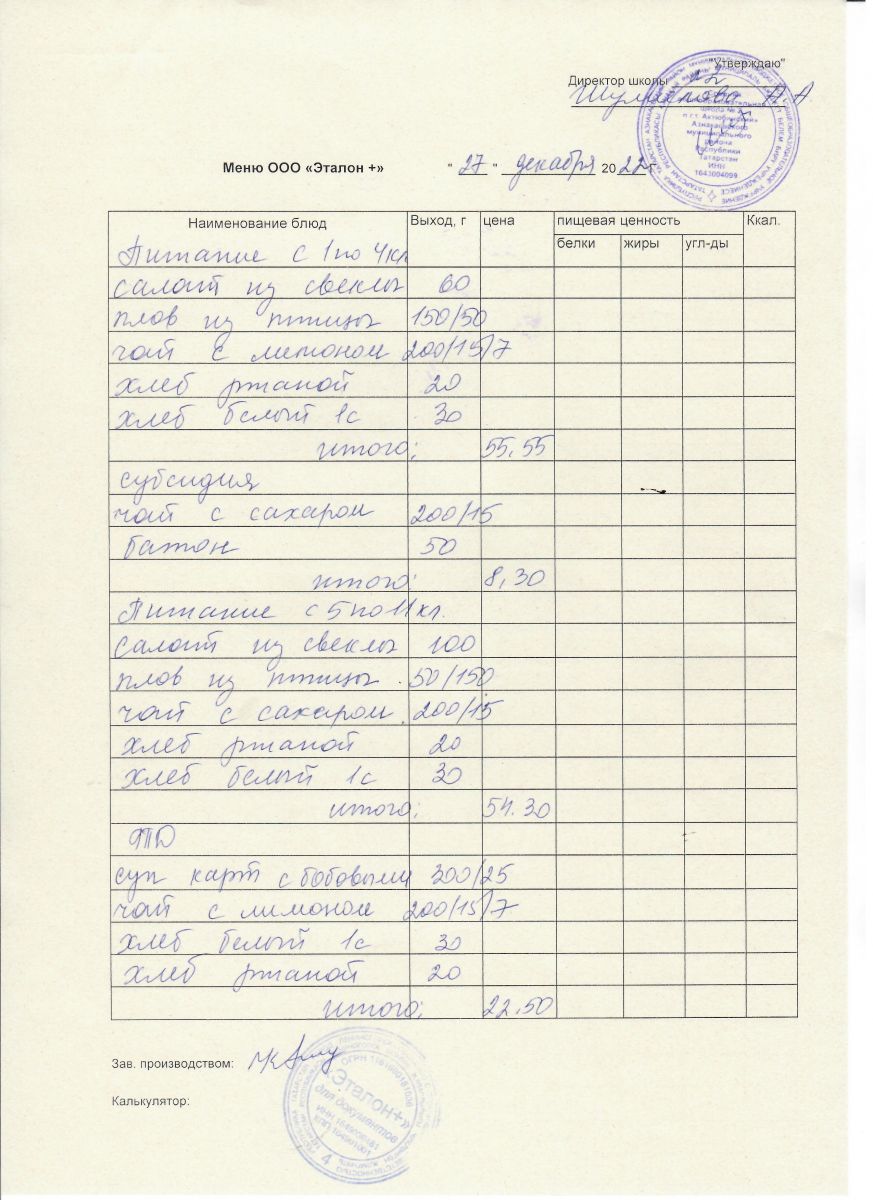 "Утверждаю"
Директор школы №2
Меню ООО «Эталон +» " 27 " декабря 2022 г.
Наименование блюд Выход, г цена пищевая ценность Ккал.
белки жиры угл-ды
Питание с 1 по 4 кл
салат из свеклы 60
плов из птицы 150/50
чай с лимоном 200/15/7
хлеб ржаной 20
хлеб белый 1с 30
итого: 55.55
субсидия
чай с сахаром 200/15
батон 50
итого: 8,30
Питание с 5 по 11 кл.
салат из свеклы 100
плов из птицы 50/150
чай с сахаром 200/15
хлеб ржаной 20
хлеб белый 1с 30
итого: 54.30
суп карт с бобовыми 300/25
чай с лимоном 200/15/7
хлеб белый 1с 30
хлеб ржаной 20
итого: 22.50
Зав. производством:
Калькулятор:
«Эталон+»
для документов
школа №2
п.г.т. Актюбинский»
Азнакаевского
муниципального
района
Республики
Татарстан
ИНН
1643004099